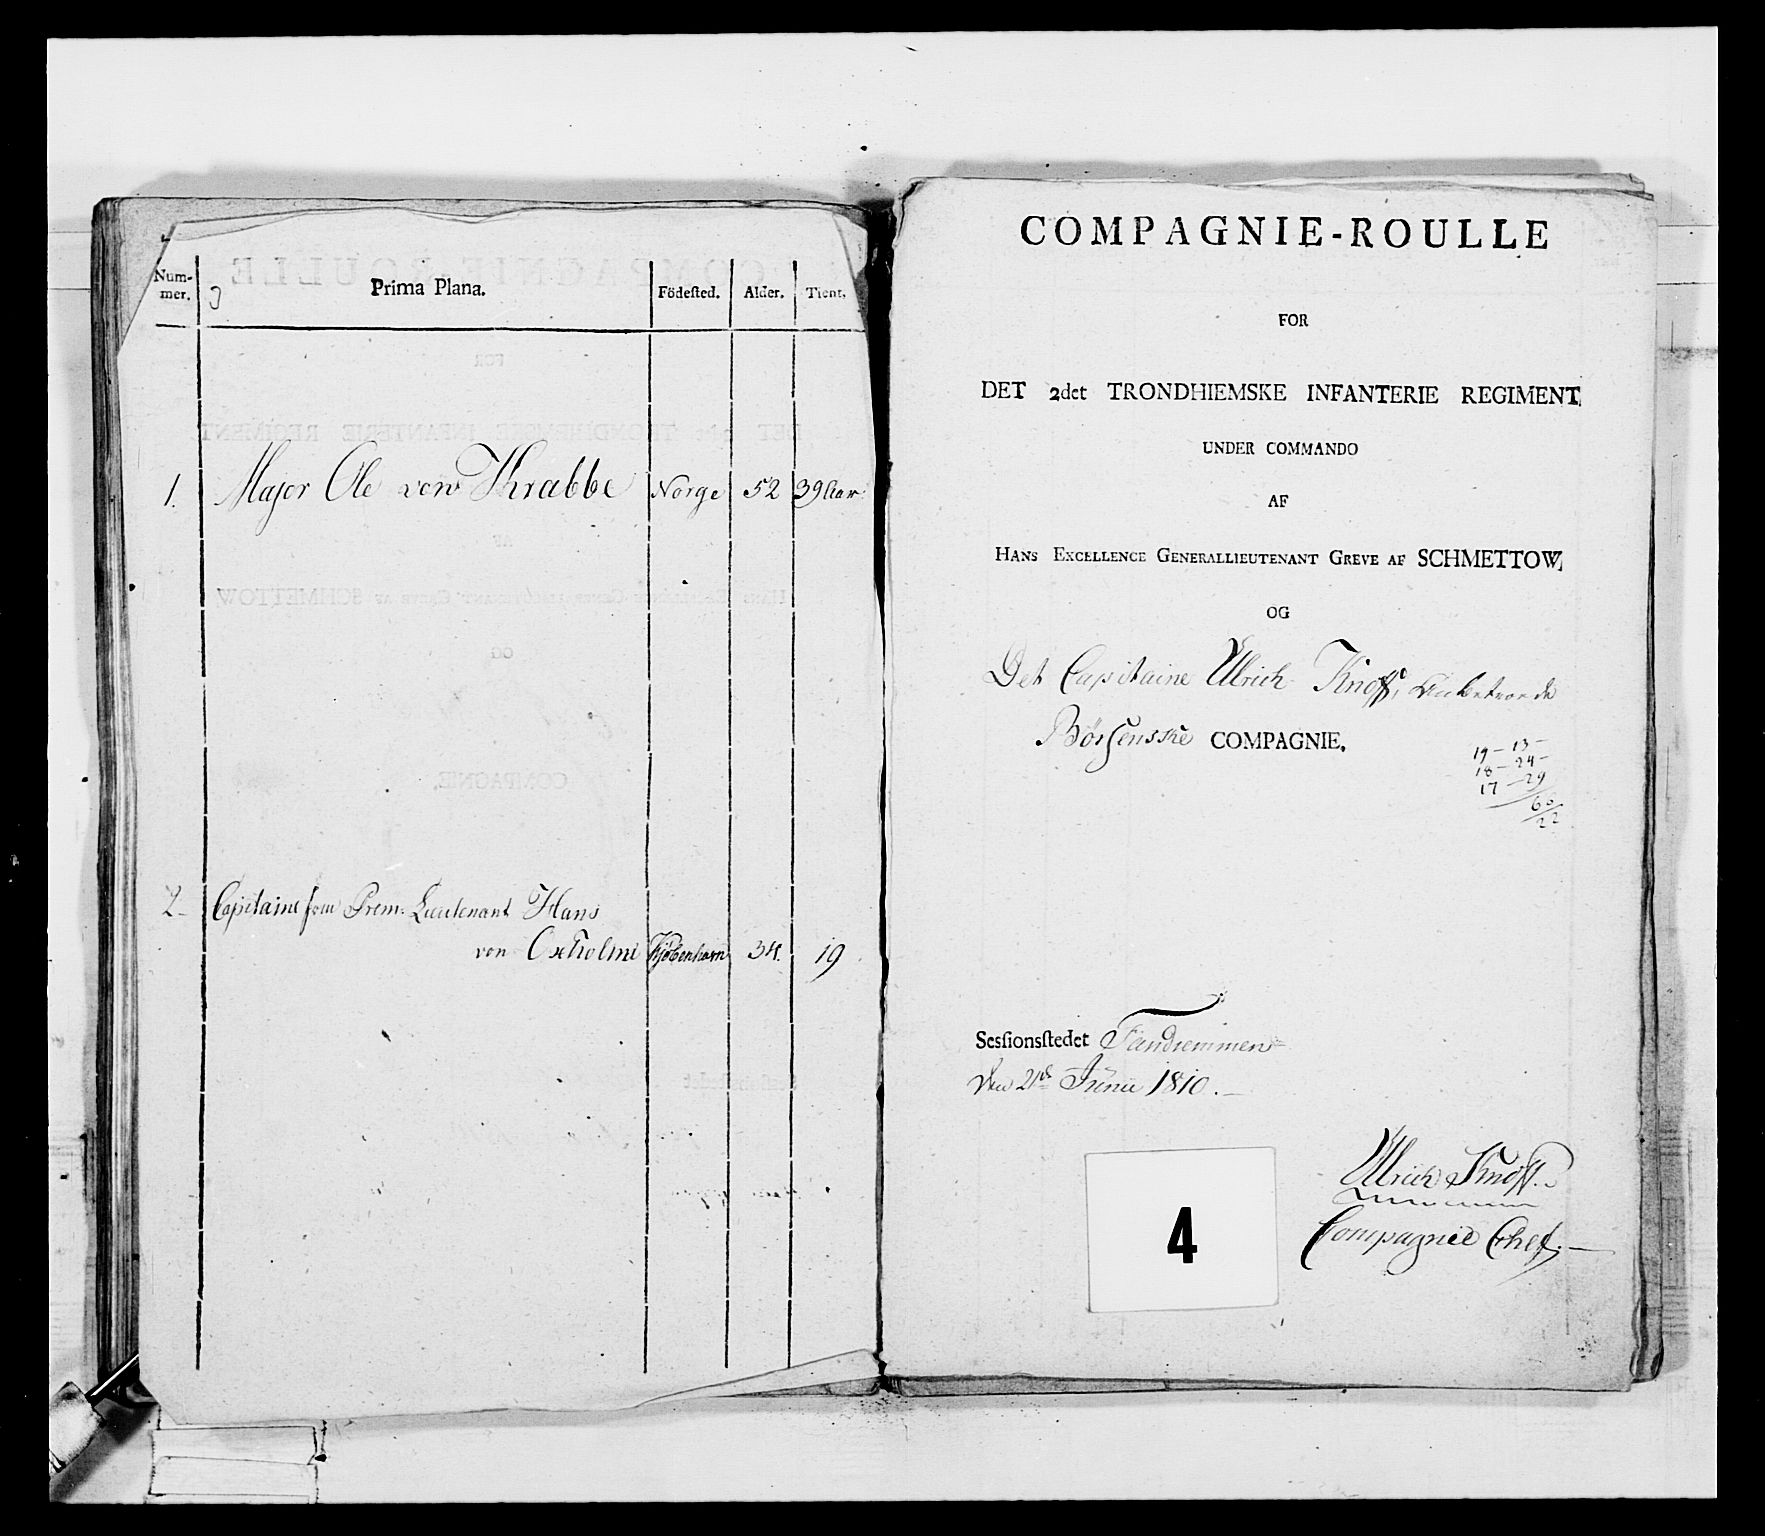 Num-
mer.
Prima Plana.
Födested.
Alder.
Tient.
1. Major Ole von Krabbe Norge 52 39 Aar
2. Capitaine som Prem: Lieutenant Hans
von Oxholm Kjøbenhavn 34. 19
COMPAGNIE-ROULLE
FOR
DET 2det TRONDHIEMSKE INFANTERIE REGIMENT,
UNDER COMMANDO
AF
HANS EXCELLENCE GENERALLIEUTENANT GREVE AF SCHMETTOW,
OG
Det Capitaine Ulrich Knoff, anbetroede
Børsenske COMPAGNIE.
19 - 13 -
18 - 24 -
17 - 29
66
22
Sessionstedet
den 21de Junii 1810.
Ulrich Knoff.
Compagnie Chef.
4